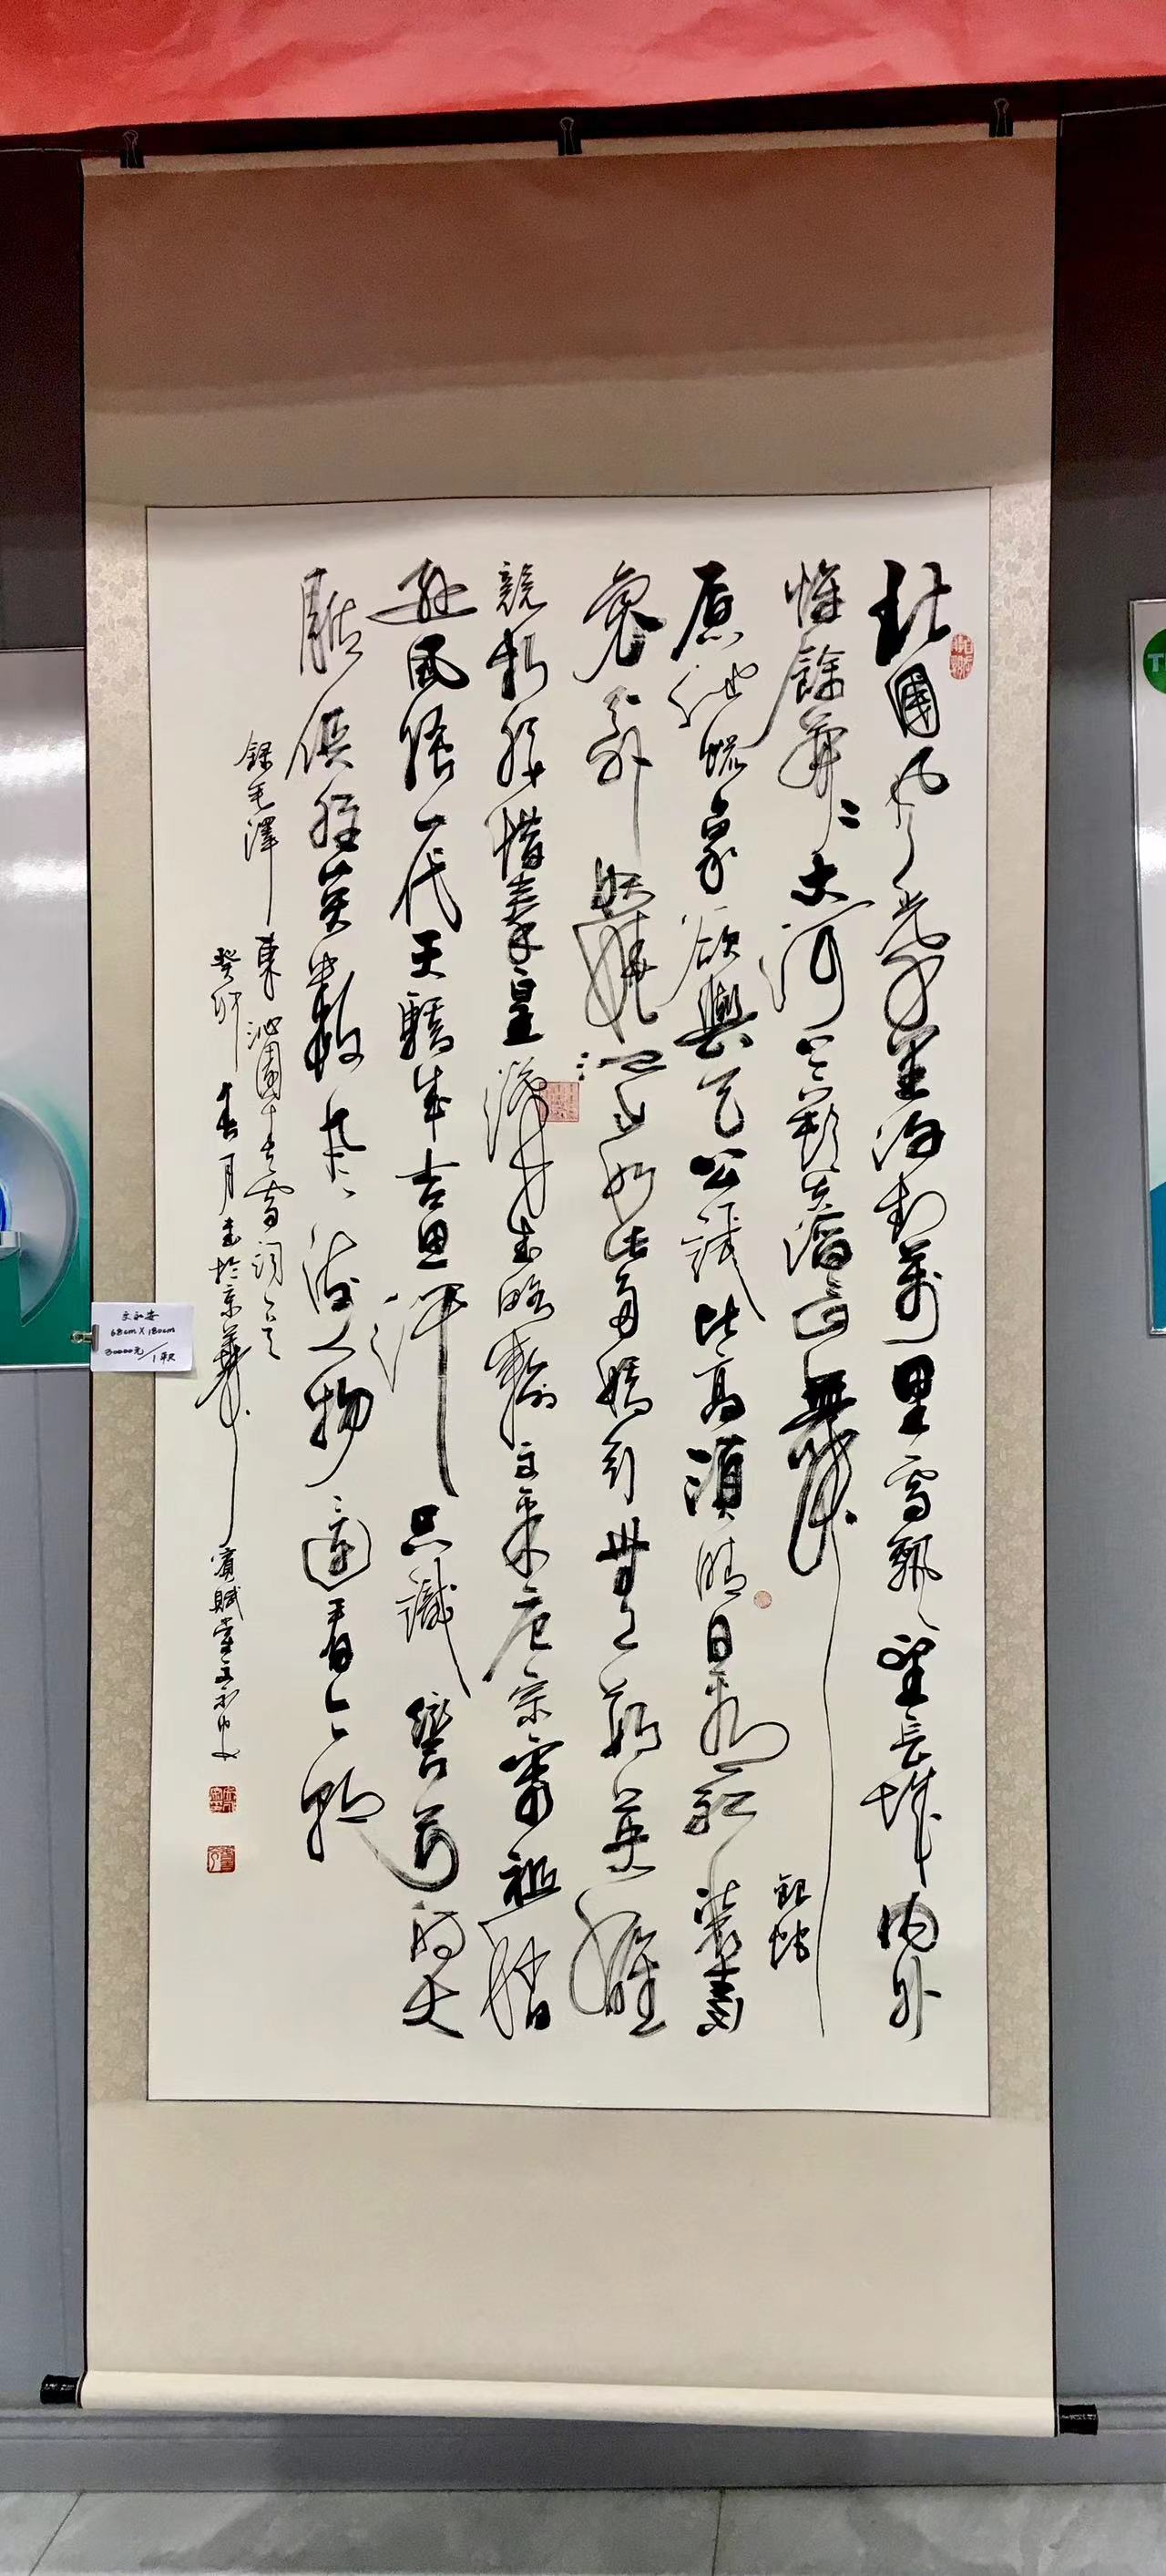 北國風光千里冰封萬里雪飄望長城內外
惟餘莽〻大河上下頓失滔〻山舞銀蛇
原馳蠟象欲與天公試比高須晴日看紅裝素
裹分外妖嬈江山如此多嬌引無數英雄
競折腰惜秦皇漢武略輸文采唐宗宋祖稍
遜風騷一代天驕成吉思汗只識彎弓射大
雕俱往矣數風流人物還看今朝
錄毛澤東沁園春雪詞
癸卯春月書於京華賓賦堂文永安
文永安
68cm X 180cm
30000元/1平尺